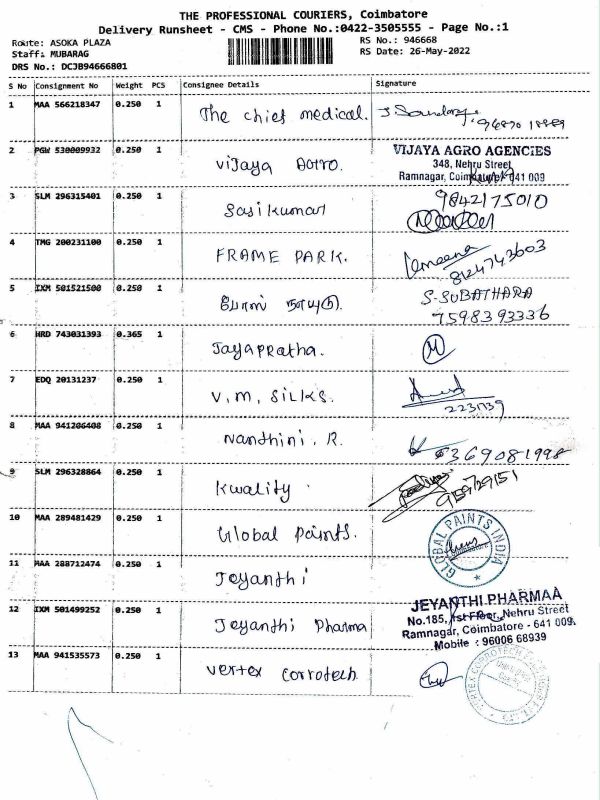 THE PROFESSIONAL COURIERS, Coimbatore
Delivery Runsheet - CMS - Phone No.:0422-3505555 - Page No.:1
Route: ASOKA PLAZA
RS No.: 946668
Staff: MUBARAG
RS Date: 26-May-2022
DRS No.: DCJB94666801
S No Consignment No Weight PCS Consignee Details Signature
1 MAA 566218347 0.250 1 The chief medical.
2 PGW 530009932 0.250 1 Vijaya VIJAYA AGRO AGENCIES
348, Nehru Street
Ramnagar, Coimbatore - 641 009
3 SLM 296315401 0.250 1 Sasikumar 9842175010
4 TMG 200231100 0.250 1 FRAME PARK. 8124743603
5 IXM 501521500 0.250 1 S-SUBATHARA
7598393336
6 HRD 743031393 0.365 1 Jayapratha.
7 EDQ 20131237 0.250 1 V.M. SILKS.
8 MAA 941206408 0.250 1 Nanthini. R.
9 SLM 296328864 0.250 1 Kwality
10 MAA 289481429 0.250 1 Global Paints. GLOBAL PAINTS INDIA
11 MAA 288712474 0.250 1 Jeyanthi
12 IXM 501499252 0.250 1 Jeyanthi Pharma JEYANTHI PHARMAA
No.185, 1st Floor, Nehru Street
Ramnagar, Coimbatore - 641 009.
Mobile : 96006 68939
13 MAA 941535573 0.250 1 Vertex Corrotech.